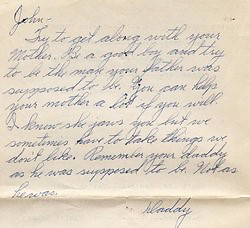 John-
Try to get along with your
Mother. Be a good boy and try
to be the man your father was
supposed to be. You can help
your mother a lot if you will.
I know she jaws you but we
sometimes have to take things we
don't like. Remember your daddy
as he was supposed to be. Not as
he was.
Daddy